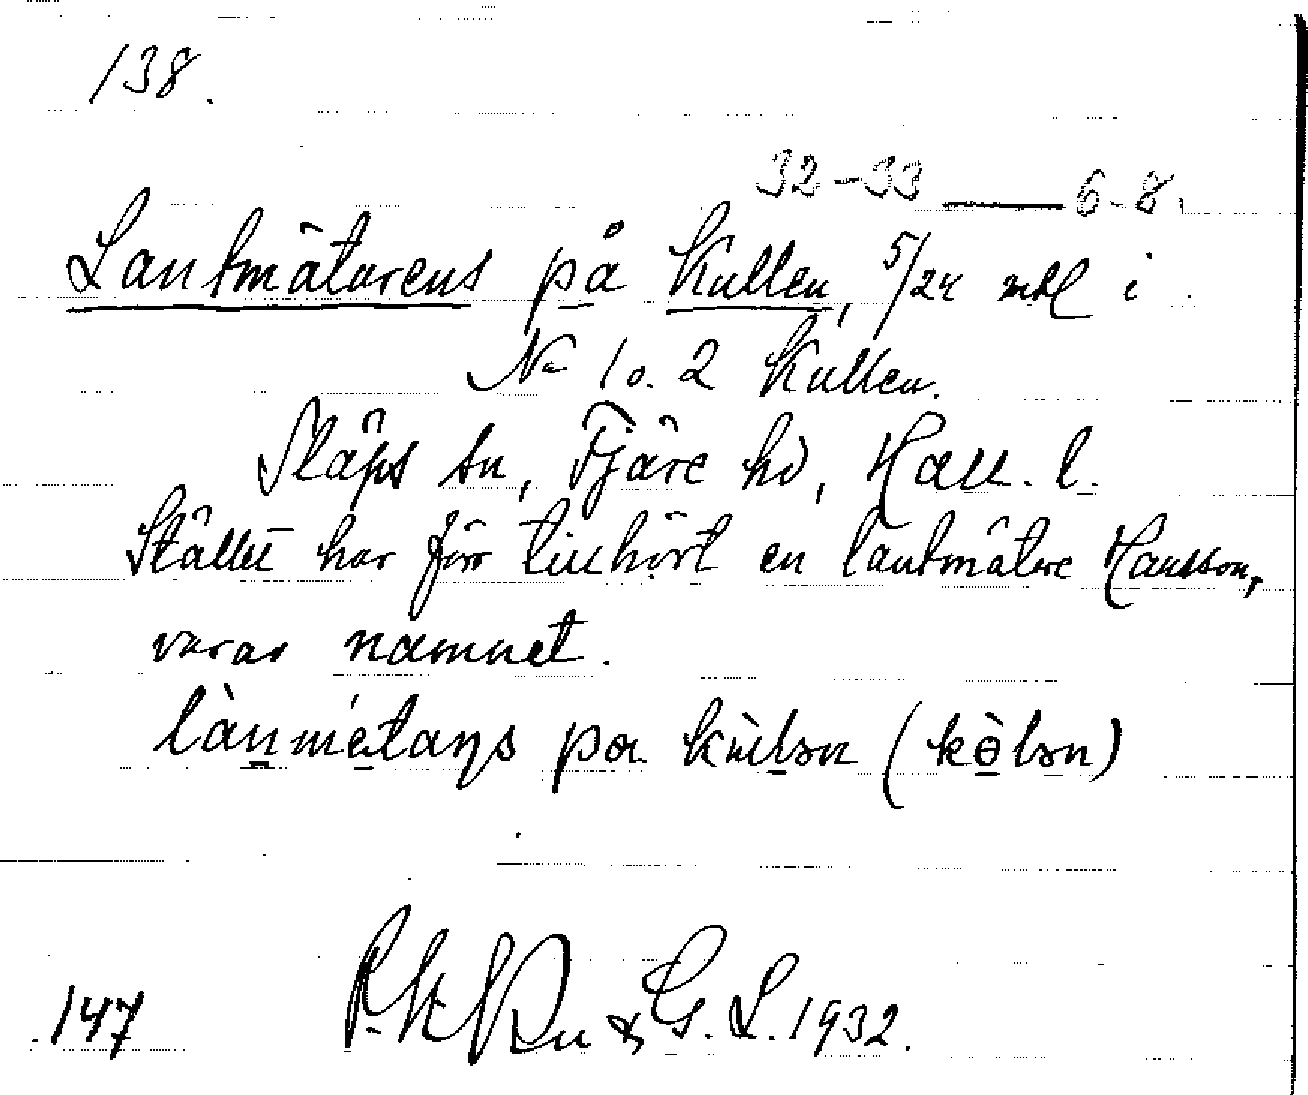 138.
32-33 — 6-8.
Lantmätarens på Kullen, 5/24 mtl i
No 1 o. 2 Kullen.
Släps sn, Fjäre hd, Hall. l.
Stället har förr tillhört en lantmätare Hansson,
varav namnet.
147
& G. L. 1932.